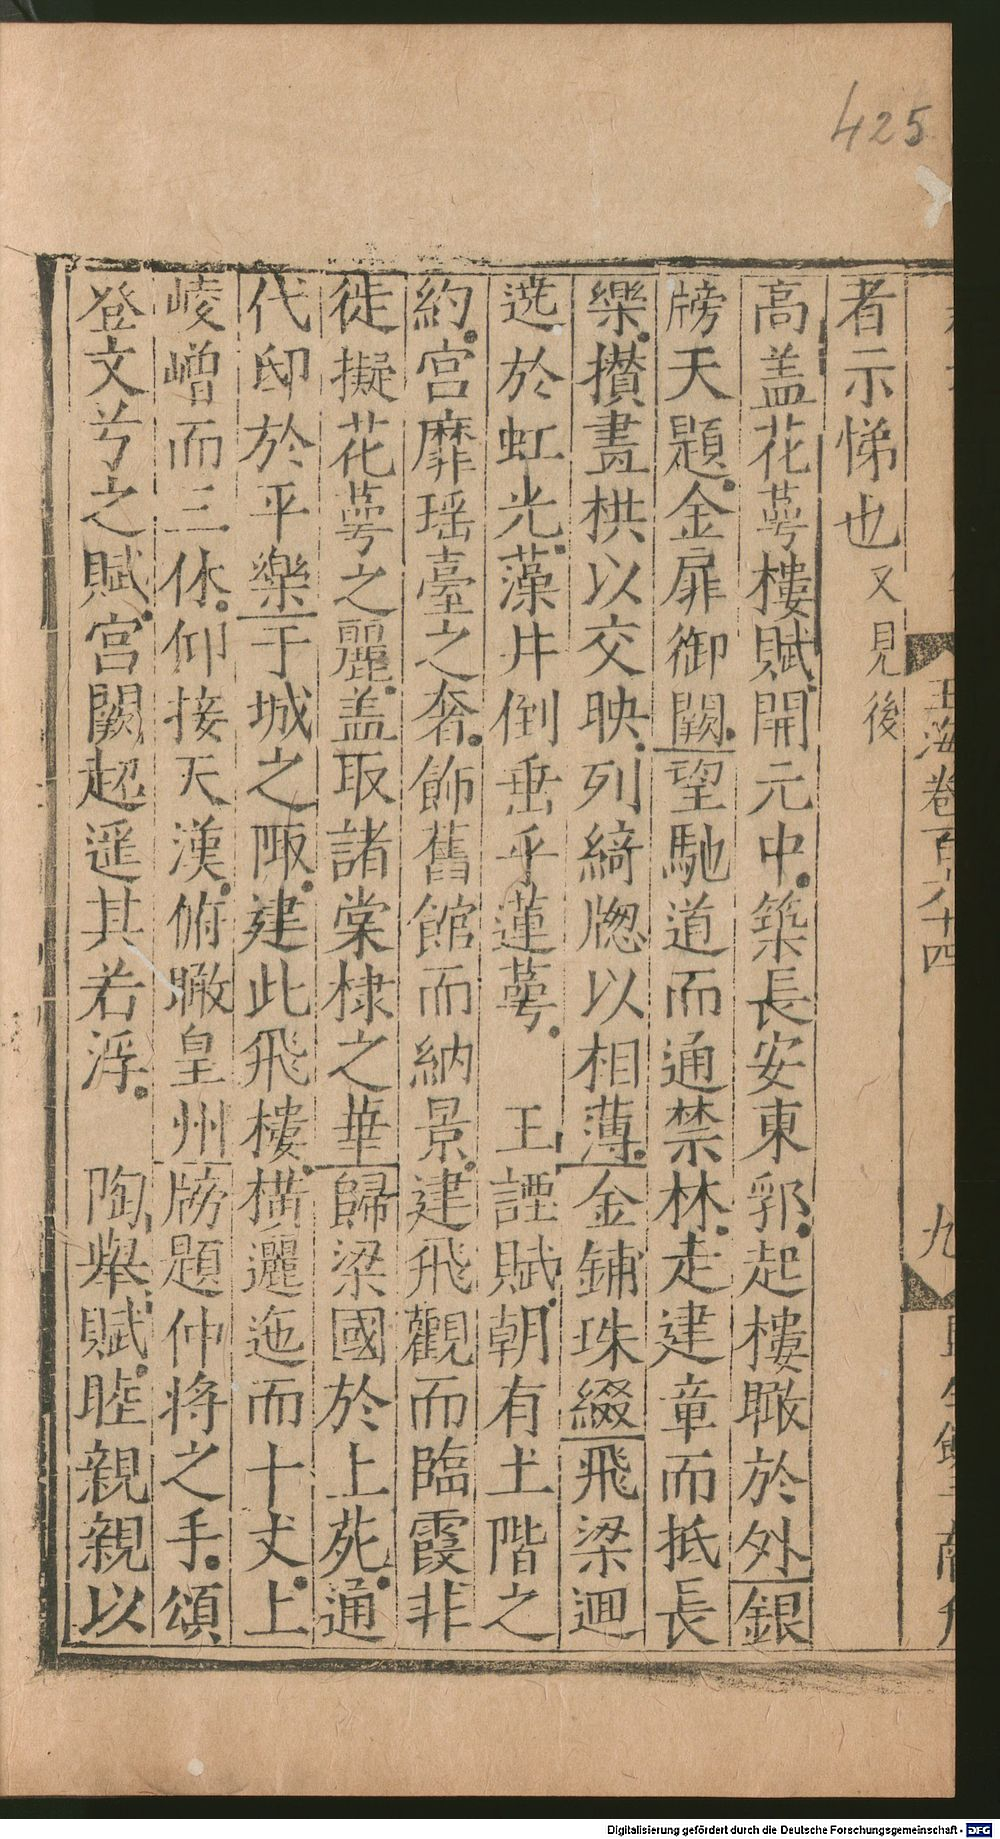 425
玉海卷百六十四
九
者示悌也又見後
高蓋花萼樓賦開元中築長安東郭起樓瞰於外銀
牓天題金扉御闕望馳道而通禁林走建章而抵長
樂攅畫栱以交映列綺牎以相薄金鋪珠綴飛梁迴
选於虹光藻井倒垂乎蓮萼 王諲賦朝有土階之
約宫靡瑶臺之奢飾舊館而納景建飛觀而臨霞非
徙擬花萼之麗盖取諸棠棣之華歸梁國於上苑通
代邸於平樂于城之陬建此飛樓横邐迤而十丈上
崚嶒而三休仰接天漢俯瞰皇州牓題仲将之手頌
登文兮之賦宫闕起遥其若浮 陶舉賦睦親親以
Digitalisierung gefördert durch die Deutsche Forschungsgemeinschaft - DFG